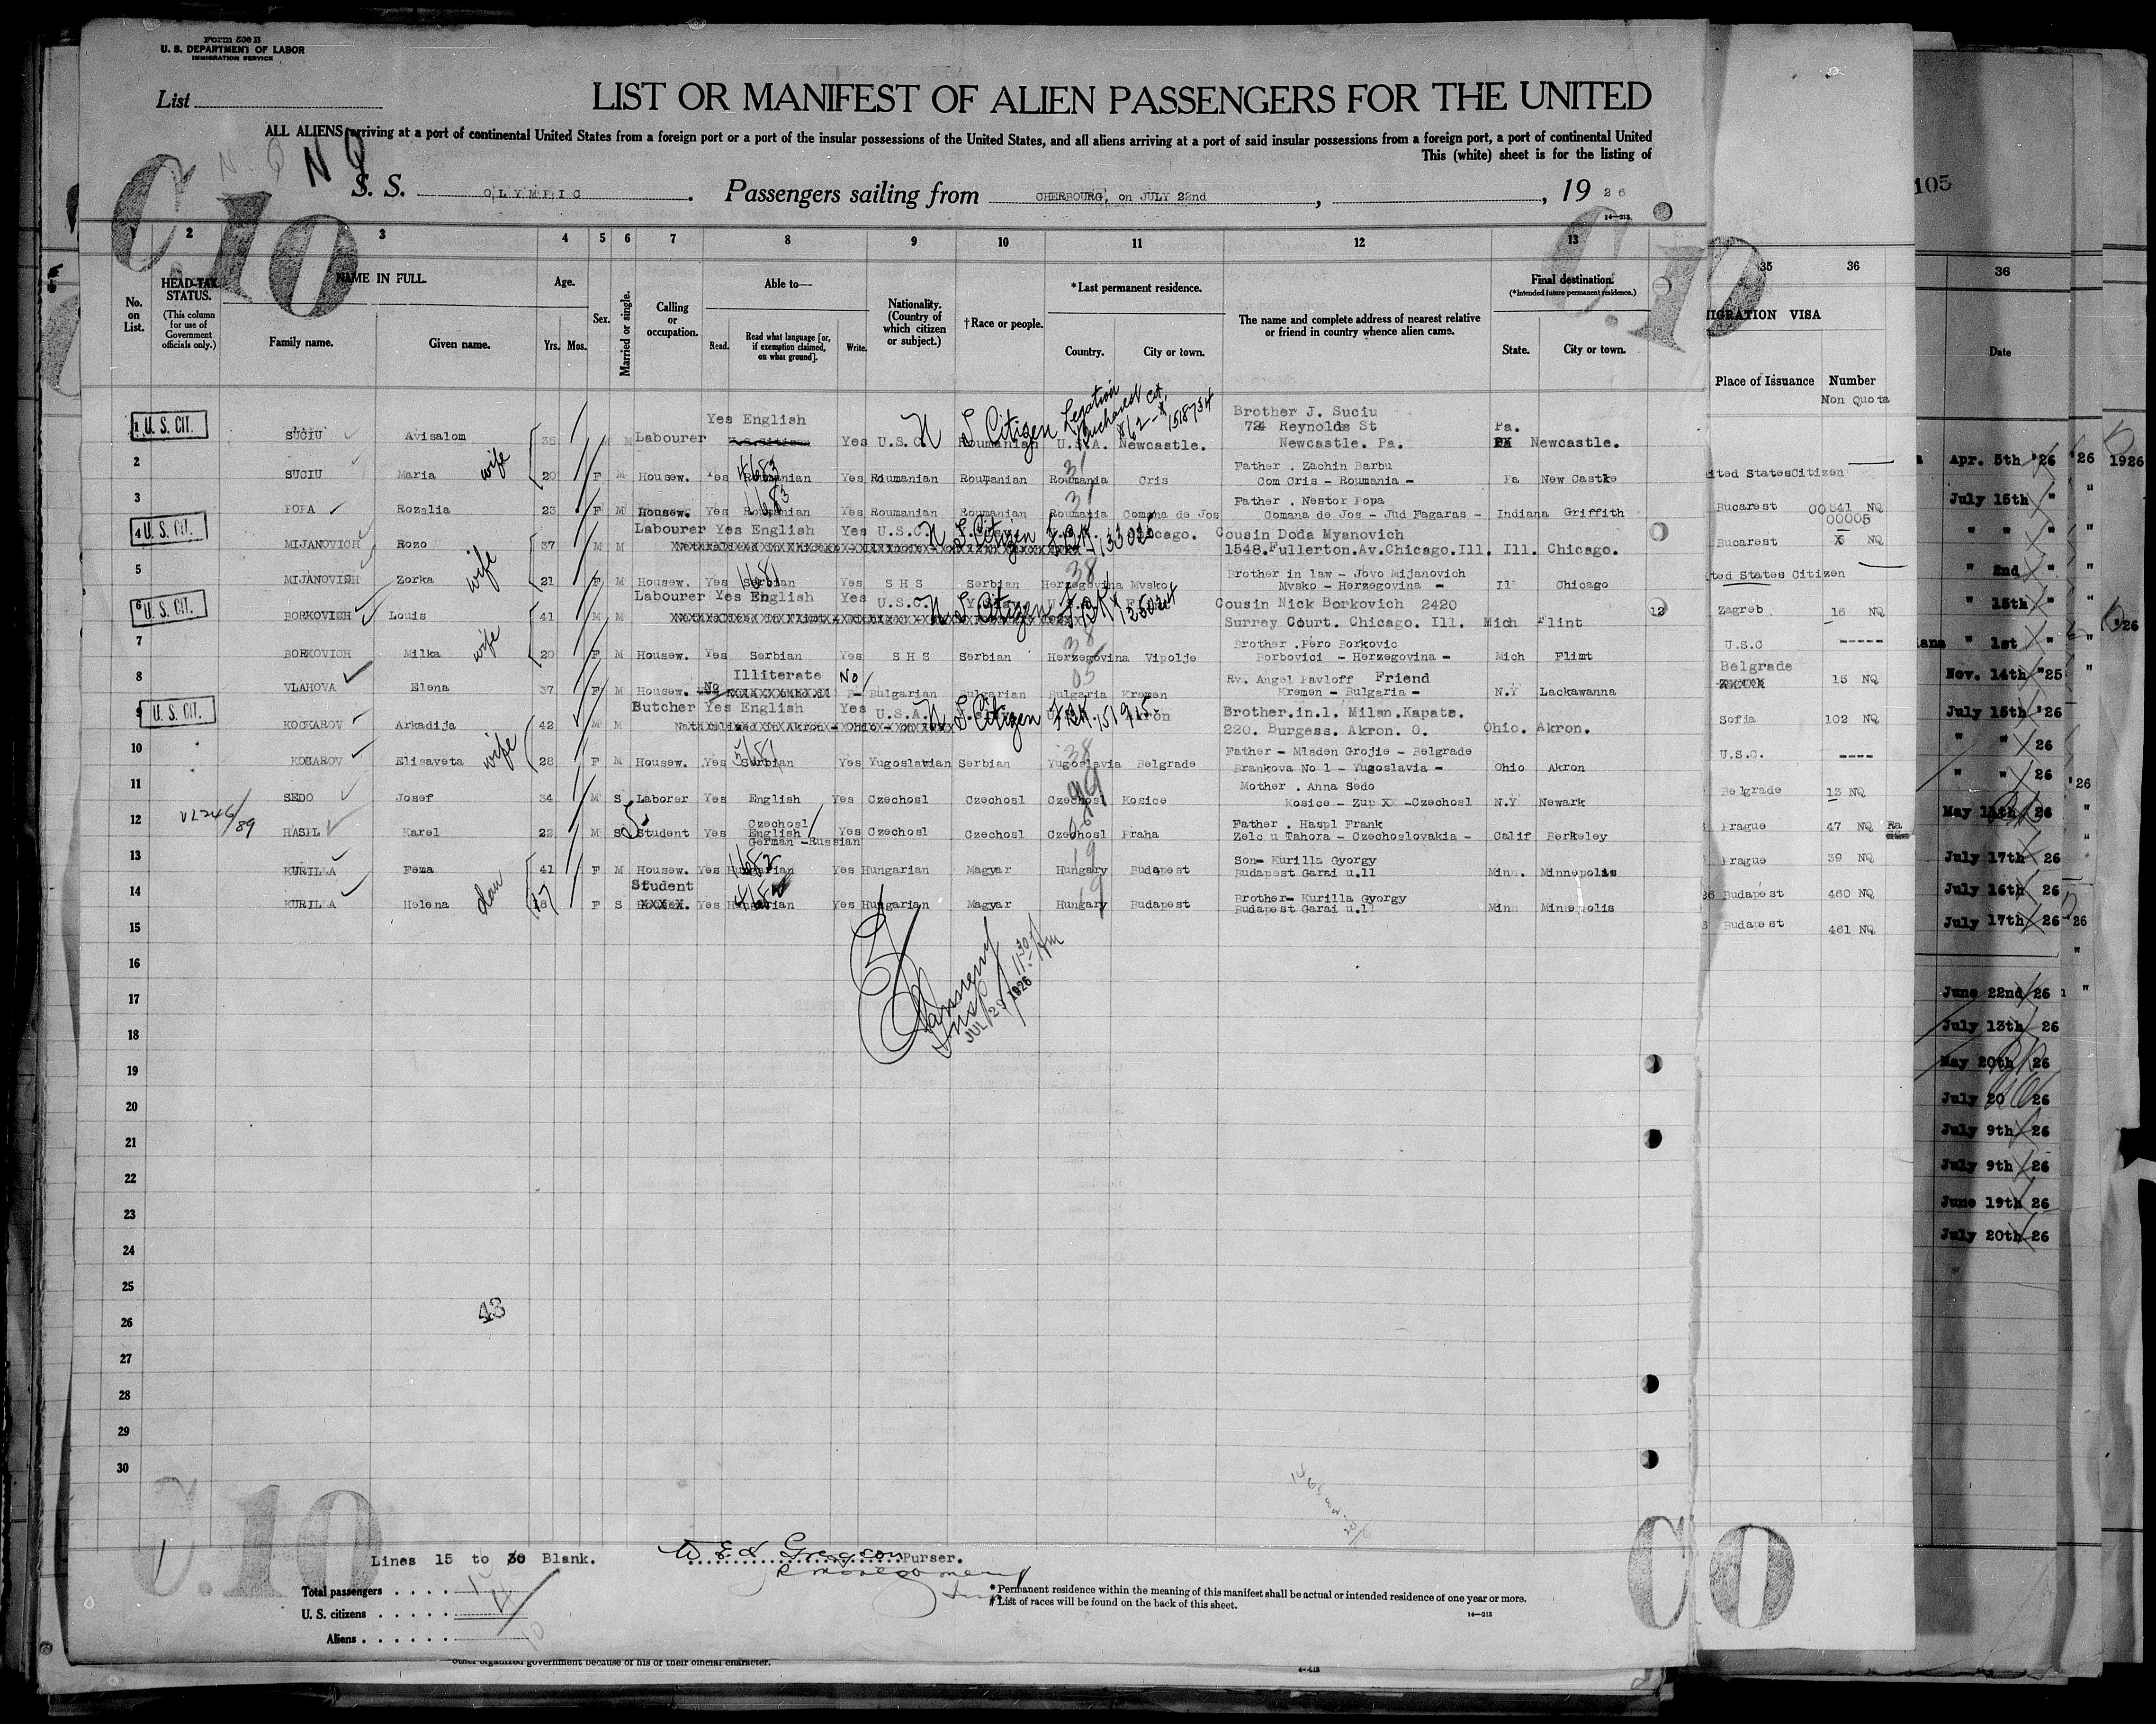 Form 500 B
U. S. DEPARTMENT OF LABOR
IMMIGRATION SERVICE
List
LIST OR MANIFEST OF ALIEN PASSENGERS FOR THE UNITED
ALL ALIENS arriving at a port of continental United States from a foreign port or a port of the insular possessions of the United States, and all aliens arriving at a port of said insular possessions from a foreign port, a port of continental United
This (white) sheet is for the listing of
N Q N Q
C 10
S. S. OLYMPIC. Passengers sailing from CHERBOURG, on JULY 22nd, , 19 26
14—213
C.10
105
1 2 3 4 5 6 7 8 9 10 11 12 13 35 36 36
No. on List.
HEAD-TAX STATUS.
(This column for use of Government officials only.)
NAME IN FULL.
Family name. Given name.
Age.
Yrs. Mos.
Sex.
Married or single.
Calling or occupation.
Able to—
Read. Read what language [or, if exemption claimed, on what ground]. Write.
Nationality. (Country of which citizen or subject.)
†Race or people.
*Last permanent residence.
Country. City or town.
The name and complete address of nearest relative or friend in country whence alien came.
Final destination.
(*Intended future permanent residence.)
State. City or town.
IGRATION VISA
Place of Issuance Number
Non Quota
Date
1 U. S. CIT. SUCIU Avisalom 35 M M Labourer Yes English Yes U.S.C. Roumanian U.S.A. Newcastle. Brother J. Suciu 724 Reynolds St Newcastle. Pa. Pa. Newcastle.
U S Citizen Legation
2 SUCIU Maria wife 20 F M Housew. Yes Roumanian Yes Roumanian Roumanian Roumania Cris Father . Zachin Barbu Com Cris - Roumania - Pa New Castle
3 POPA Rozalia 23 F M Housew. Yes Roumanian Yes Roumanian Roumanian Roumania Comana de Jos Father . Nestor Popa Comana de Jos - Jud Fagaras - Indiana Griffith
4 U. S. CIT. MIJANOVICH Rozo 37 M M Labourer Yes English Yes U.S.C. U S Citizen Chicago. Cousin Doda Myanovich 1548.Fullerton.Av.Chicago.Ill. Ill. Chicago.
5 MIJANOVICH Zorka wife 21 F M Housew. Yes Serbian Yes S H S Serbian Herzegovina Mvsko Brother in law - Jovo Mijanovich Mvsko - Herzegovina - Ill Chicago
6 U. S. CIT. BORKOVICH Louis 41 M M Labourer Yes English Yes U.S.C. U S Citizen Cousin Nick Borkovich 2420 Surrey Court. Chicago. Ill. Mich Flint
7 BORKOVICH Milka wife 20 F M Housew. Yes Serbian Yes S H S Serbian Herzegovina Vipolje Brother .Pero Borkovic Borbovici - Herzegovina - Mich Flint
8 VLAHOVA Elena 37 F M Housew. No Illiterate No Bulgarian Bulgarian Bulgaria Kremen Rv. Angel Pavloff Friend Kremen - Bulgaria - N.Y Lackawanna
9 U. S. CIT. KOCKAROV Arkadija 42 M M Butcher Yes English Yes U.S.A. U S Citizen Akron Brother.in.l. Milan.Kapats. 220. Burgess. Akron. O. Ohio. Akron.
10 KOCAROV Elisaveta wife 28 F M Housew. Yes Serbian Yes Yugoslavian Serbian Yugoslavia Belgrade Father - Mladen Grojie - Belgrade Brankova No 1 - Yugoslavia - Ohio Akron
11 SEDO Josef 34 M S Laborer Yes English Yes Czechosl Czechosl Czechosl Kosice Mother . Anna Sedo Kosice - Zup XX -Czechosl N.Y Newark
12 HASPL Karel 22 M S Student Yes Czechosl English German -Russian Yes Czechosl Czechosl Czechosl Praha Father . Haspl Frank Zelc u Tahora - Czechoslovakia - Calif Berkeley
13 KURILLA Fema 41 F M Housew. Yes Hungarian Yes Hungarian Magyar Hungary Budapest Son- Kurilla Gyorgy Budapest Garai u.11 Minn. Minnepolis
14 KURILLA Helena dau 17 F S Student Yes Hungarian Yes Hungarian Magyar Hungary Budapest Brother- Kurilla Gyorgy Budapest Garai u.11 Minn Minnepolis
15
16
17
18
19
20
21
22
23
24
25
26
27
28
29
30
ited StatesCitizen
Bucarest 00541 NQ
00005
Bucarest NQ
ted States Citizen
Zagreb 16 NQ
U.S.C -----
Belgrade 15 NQ
Sofia 102 NQ
U.S.C. ----
Belgrade 13 NQ
Prague 47 NQ
Prague 39 NQ
Budapest 460 NQ
Budapest 461 NQ
Apr. 5th '26
July 15th "
" " "
" 2nd "
" 15th "
" 1st "
Nov. 14th "25
July 15th '26
" " 26
" " 26
May 11th 26
July 17th 26
July 16th 26
July 17th 26
June 22nd 26
July 13th 26
May 20th 26
July 20 26
July 9th 26
July 9th 26
June 19th 26
July 20th 26
JUL 29 1926
43
C.10
Lines 15 to 30 Blank.
Purser.
Total passengers
U. S. citizens
Aliens
* Permanent residence within the meaning of this manifest shall be actual or intended residence of one year or more.
† List of races will be found on the back of this sheet.
14—213
C O
other organized government because of his or their official character.